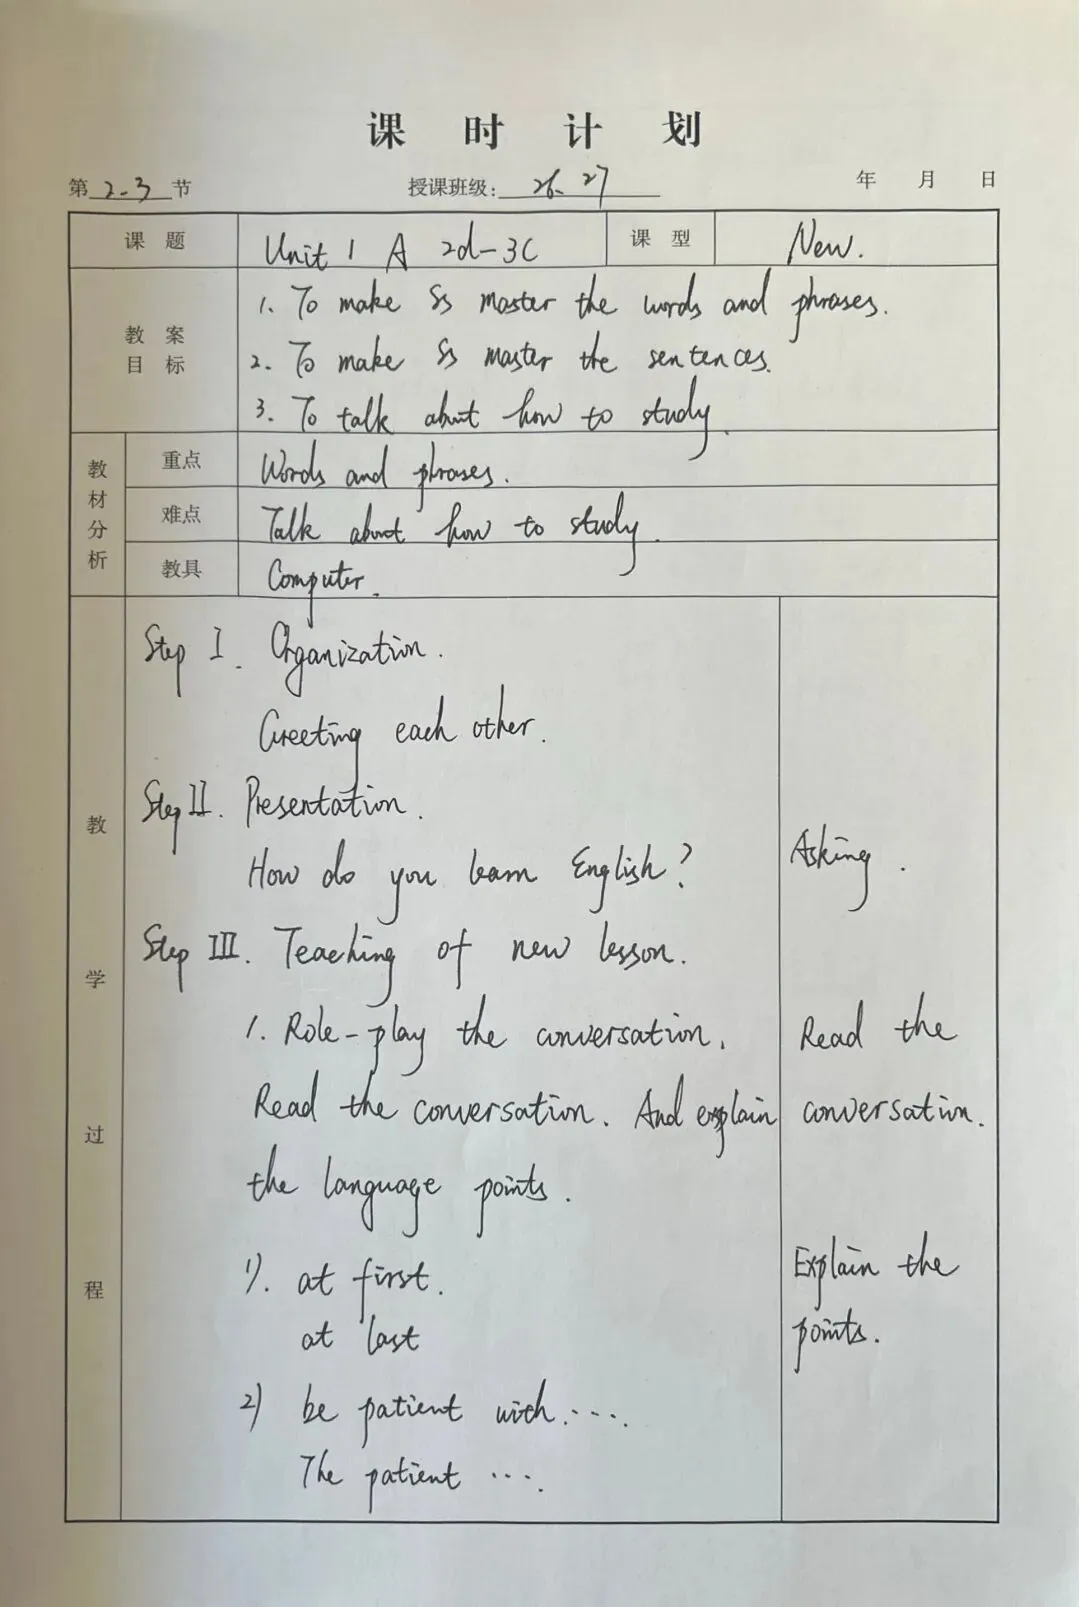 课 时 计 划
第 2-3 节 授课班级: 26、27 年 月 日
课 题 Unit 1 A 2d-3C 课 型 New.
教 案 目 标
1. To make Ss master the words and phrases.
2. To make Ss master the sentences.
3. To talk about how to study.
教材分析
重点 Words and phrases.
难点 Talk about how to study.
教具 Computer.
教 学 过 程
Step I. Organization.
Greeting each other.
Step II. Presentation.
How do you learn English? Asking.
Step III. Teaching of new lesson.
1. Role-play the conversation. Read the
Read the conversation. And explain conversation.
the language points.
1). at first. Explain the
at last points.
2) be patient with.....
The patient ....